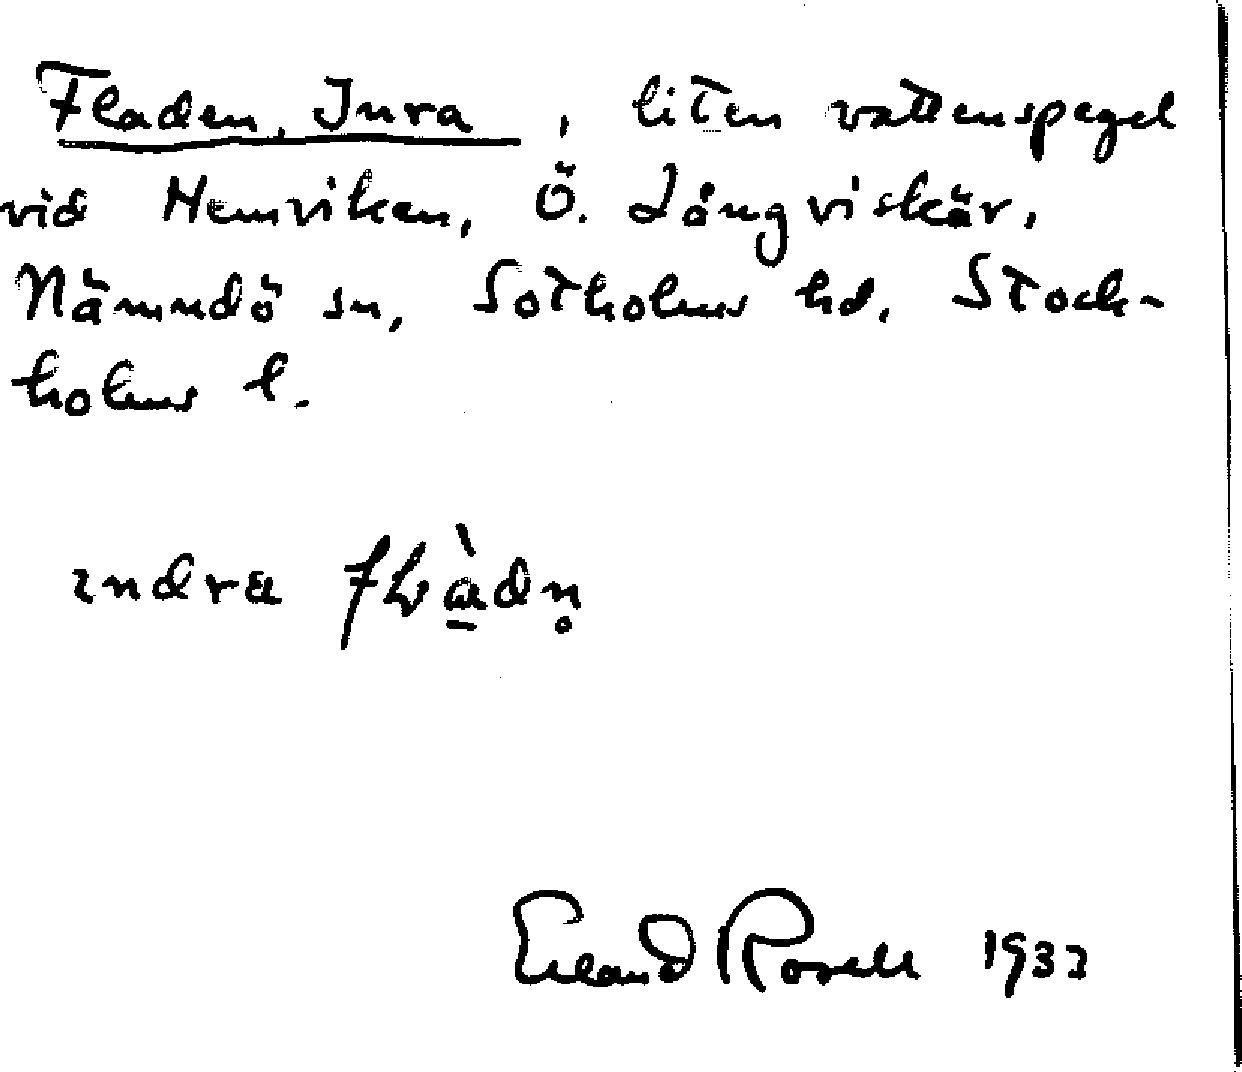 Fladen, Inra, liten vattenspegel
vid Hemviken, Ö. Långviskär,
Nämndö sn, Sotholms hd, Stock-
holms l.
indra
Erland Rosell 1932